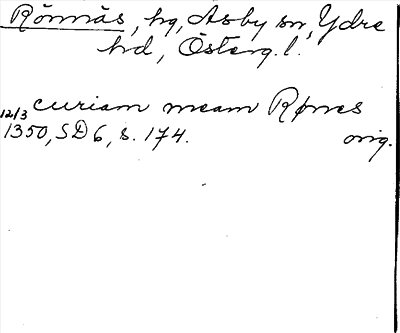 Rönnäs, hg, Asby sn, Ydre
hd, Österg. l.
12/3 curiam meam Rønes
1350, SD 6, s. 174. orig.